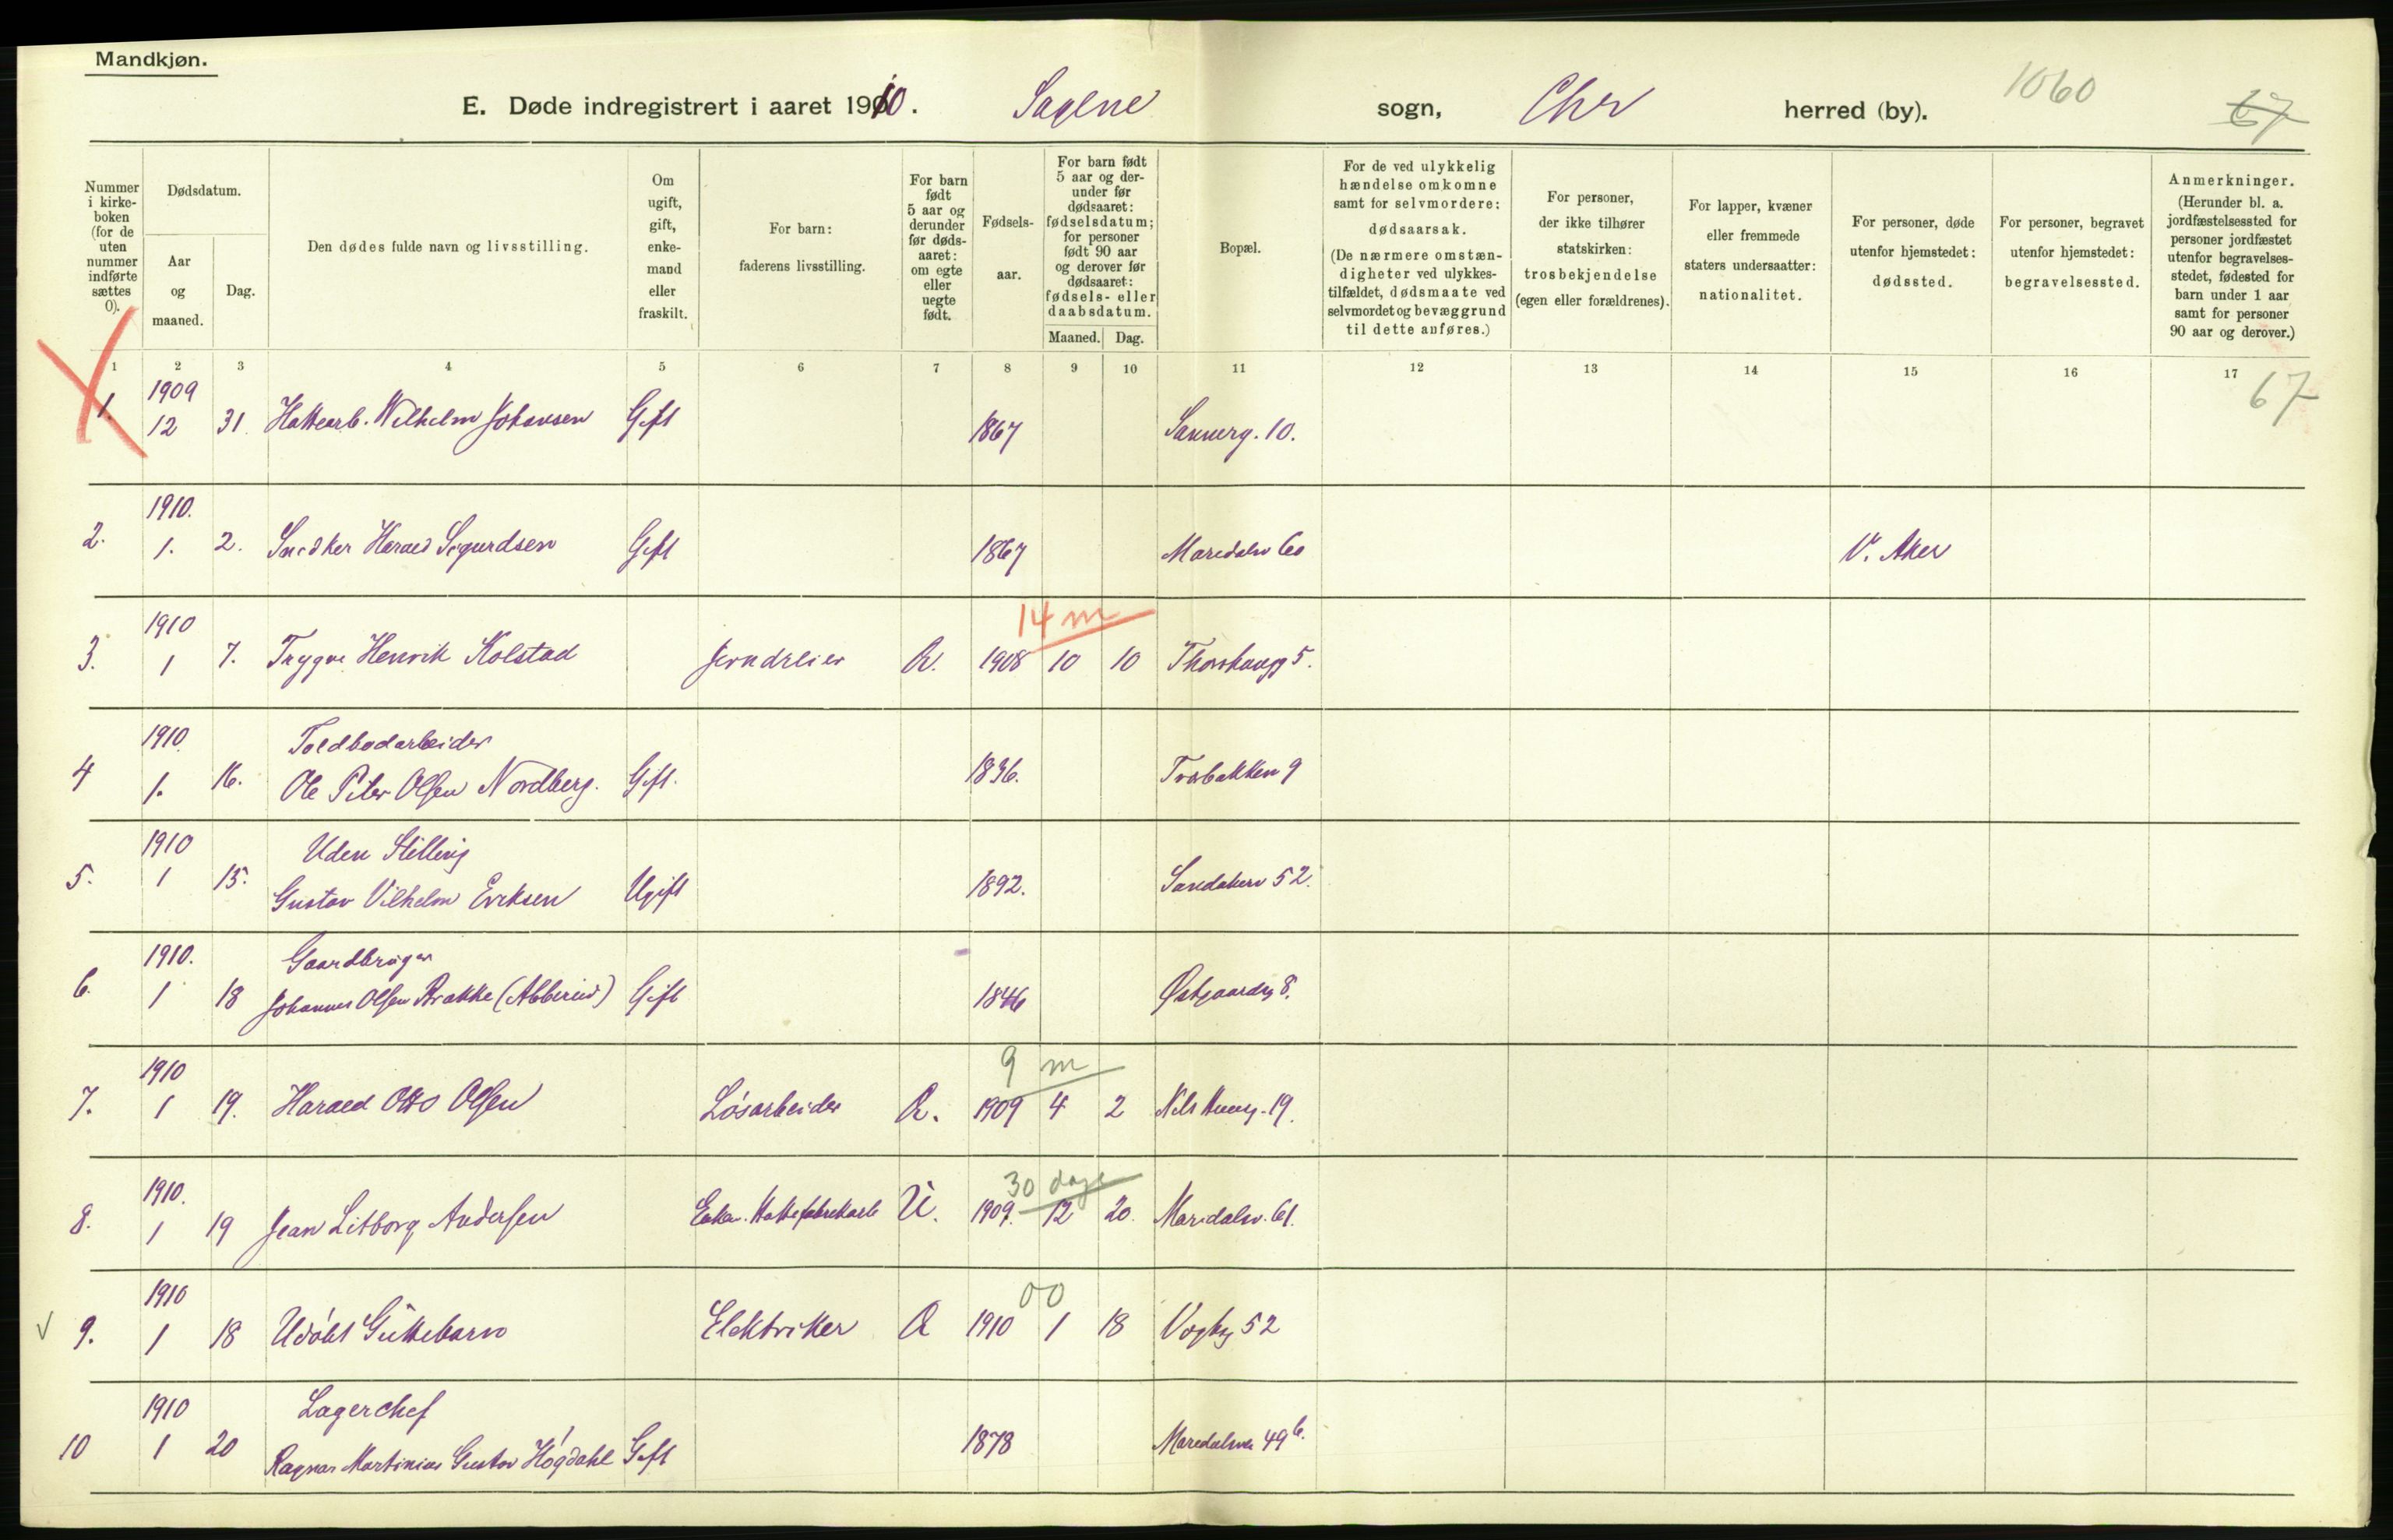 Mandkjøn.
E. Døde indregistrert i aaret 1910. Sagene sogn, Chr herred (by). 1060 67
Nummer i kirkeboken (for de uten nummer indførte sættes 0).
Dødsdatum.
Aar og maaned.
Dag.
Den dødes fulde navn og livsstilling.
Om ugift, gift, enkemand eller fraskilt.
For barn: faderens livsstilling.
For barn født 5 aar og derunder før dødsaaret: om egte eller uegte født.
Fødselsaar.
For barn født 5 aar og derunder før dødsaaret: fødselsdatum; for personer født 90 aar og derover før dødsaaret: fødsels- eller daabsdatum.
Maaned. Dag.
Bopæl.
For de ved ulykkelig hændelse omkomne samt for selvmordere: dødsaarsak. (De nærmere omstændigheter ved ulykkestilfældet, dødsmaate ved selvmordet og bevæggrund til dette anføres.)
For personer, der ikke tilhører statskirken: trosbekjendelse (egen eller forældrenes).
For lapper, kvæner eller fremmede staters undersaatter: nationalitet.
For personer, døde utenfor hjemstedet: dødssted.
For personer, begravet utenfor hjemstedet: begravelsessted.
Anmerkninger. (Herunder bl. a. jordfæstelsessted for personer jordfæstet utenfor begravelsesstedet, fødested for barn under 1 aar samt for personer 90 aar og derover.)
1 2 3 4 5 6 7 8 9 10 11 12 13 14 15 16 17
67
1909
1. 12 31. Hattearb. Wilhelm Johansen Gift 1867 Sannerg. 10.
1910.
2. 1. 2. Snedker Harald Sigurdsen Gift 1867 Maridalsv 60 V. Aker
1910 14 m
3. 1 7. Trygve Henrik Kolstad Jerndreier Æ. 1908 10 10 Thorshaugg 5.
1910. Toldbodarbeider
4 1. 16. Ole Peter Olsen Nordberg. Gift. 1836. Torsbakken 9
1910 Uden Stilling
5. 1 15. Gustav Vilhelm Eriksen Ugift 1892. Sandakerv 52.
1910. Gaardbruger
6. 1 18 Johannes Olsen Brakke Gift 1846 Østgaardsg 8.
1910 9 m
7. 1 19. Harald Otto Olsen Løsarbeider Æ. 1909 4 2 19.
1910. 30 dage
8. 1 19 Jean Litborg Andersen Hattefabrikarb U. 1909. 12 20. Maridalsv. 61.
1910 00
9. 1 18 Udøbt Guttebarn Elektriker Æ 1910 1 18 Vogtsg 52
1910 Lagerchef
10 1 20 Ragnar Martinius Gustav Høgdahl Gift 1878 Maridalsvei 49 b.